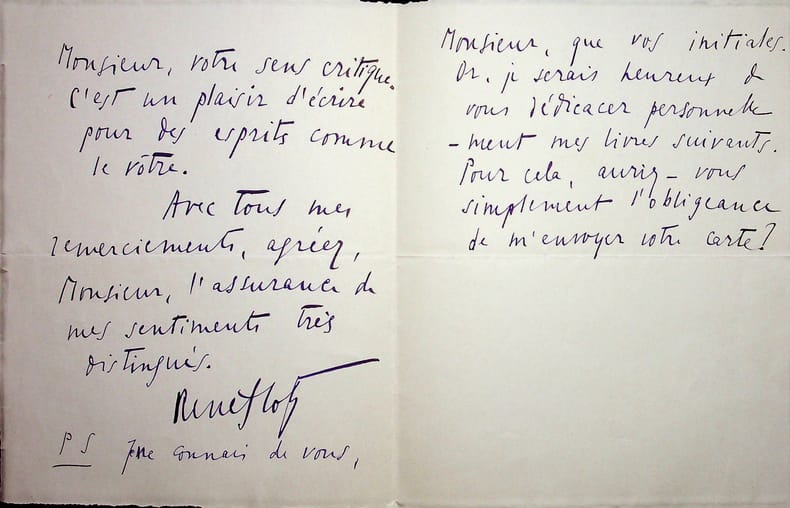 Monsieur, votre sens critique.
C'est un plaisir d'écrire
pour des esprits comme
le vôtre.
Avec tous mes
remerciements, agréez,
Monsieur, l'assurance de
mes sentiments très
distingués.
René
PS Je ne connais de vous,
Monsieur, que vos initiales.
Or, je serais heureux de
vous dédicacer personnelle
-ment mes livres suivants.
Pour cela, auriez-vous
simplement l'obligeance
de m'envoyer votre carte?